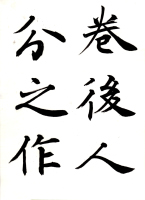 卷後人
分之作